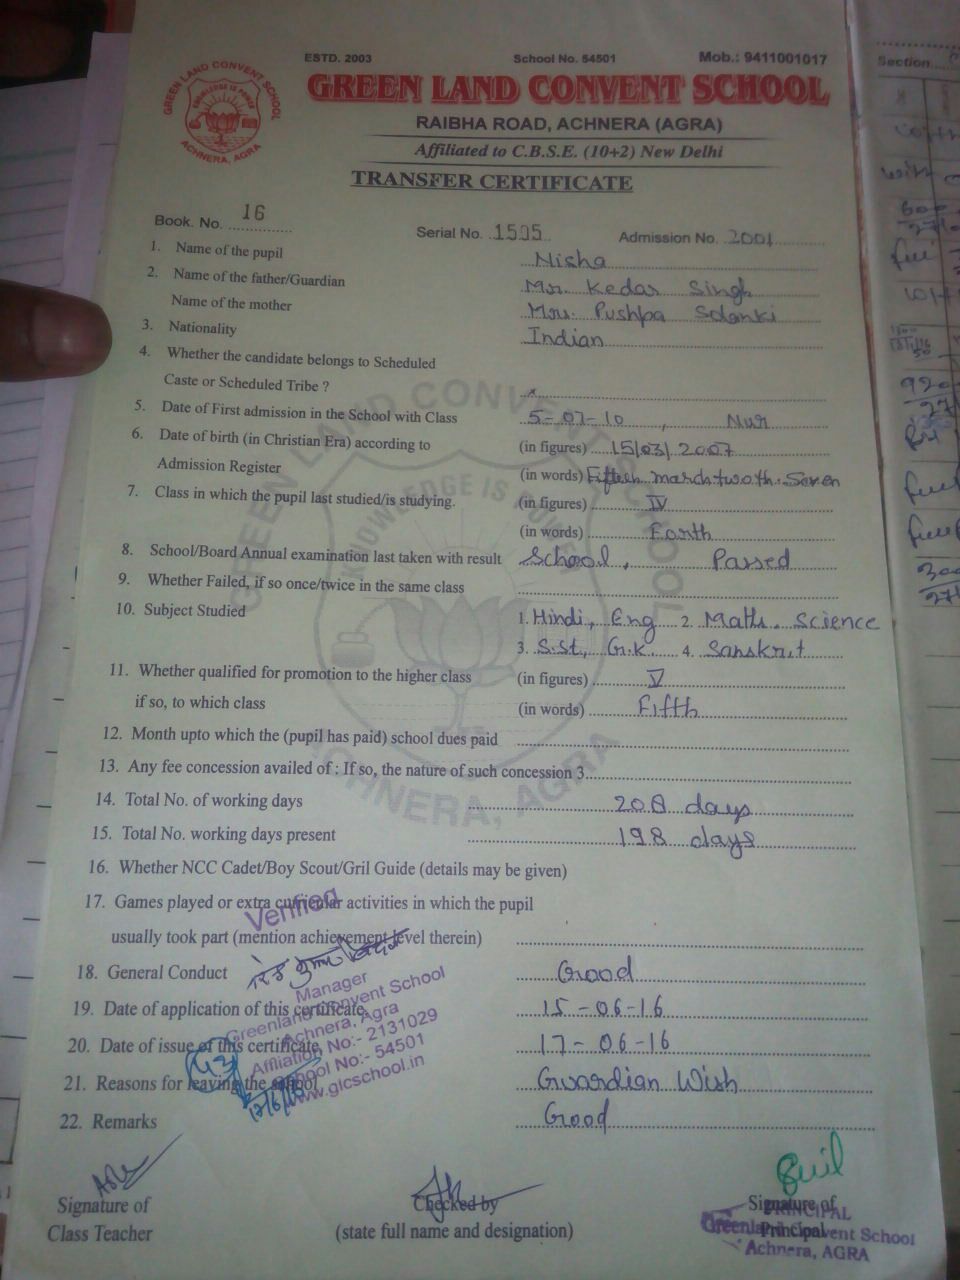 ESTD. 2003 School No. 54501 Mob.: 9411001017
GREEN LAND CONVENT SCHOOL
RAIBHA ROAD, ACHNERA (AGRA)
Affiliated to C.B.S.E. (10+2) New Delhi
TRANSFER CERTIFICATE
GREEN LAND CONVENT SCHOOL
KNOWLEDGE IS POWER
ACHNERA, AGRA
Book. No. 16 Serial No. 1505 Admission No. 2001
1. Name of the pupil Nisha
2. Name of the father/Guardian Mr. Kedar Singh
Name of the mother Mrs. Pushpa Solanki
3. Nationality Indian
4. Whether the candidate belongs to Scheduled
Caste or Scheduled Tribe ? x
5. Date of First admission in the School with Class 5-07-10, Nur
6. Date of birth (in Christian Era) according to (in figures) 15/03/2007
Admission Register (in words) Fifteen march twoth. Seven
7. Class in which the pupil last studied/is studying. (in figures) IV
(in words) Forth
8. School/Board Annual examination last taken with result School, Passed
9. Whether Failed, if so once/twice in the same class
10. Subject Studied 1. Hindi, Eng 2. Maths. Science
3. S.St, G.K. 4. Sanskrit
11. Whether qualified for promotion to the higher class (in figures) V
if so, to which class (in words) Fifth
12. Month upto which the (pupil has paid) school dues paid
13. Any fee concession availed of : If so, the nature of such concession 3
14. Total No. of working days 208 days
15. Total No. working days present 198 days
16. Whether NCC Cadet/Boy Scout/Gril Guide (details may be given)
17. Games played or extra curricular activities in which the pupil
usually took part (mention achievement level therein)
18. General Conduct Good
19. Date of application of this certificate 15-06-16
20. Date of issue of this certificate 17-06-16
21. Reasons for leaving the school Guardian Wish
22. Remarks Good
Verified
Manager
Greenland Convent School
Achnera, Agra
Affliation No:- 2131029
School No:- 54501
www.glcschool.in
Signature of
Class Teacher
Checked by
(state full name and designation)
Signature of
Principal
PRINCIPAL
Greenland Convent School
Achnera, AGRA
Section